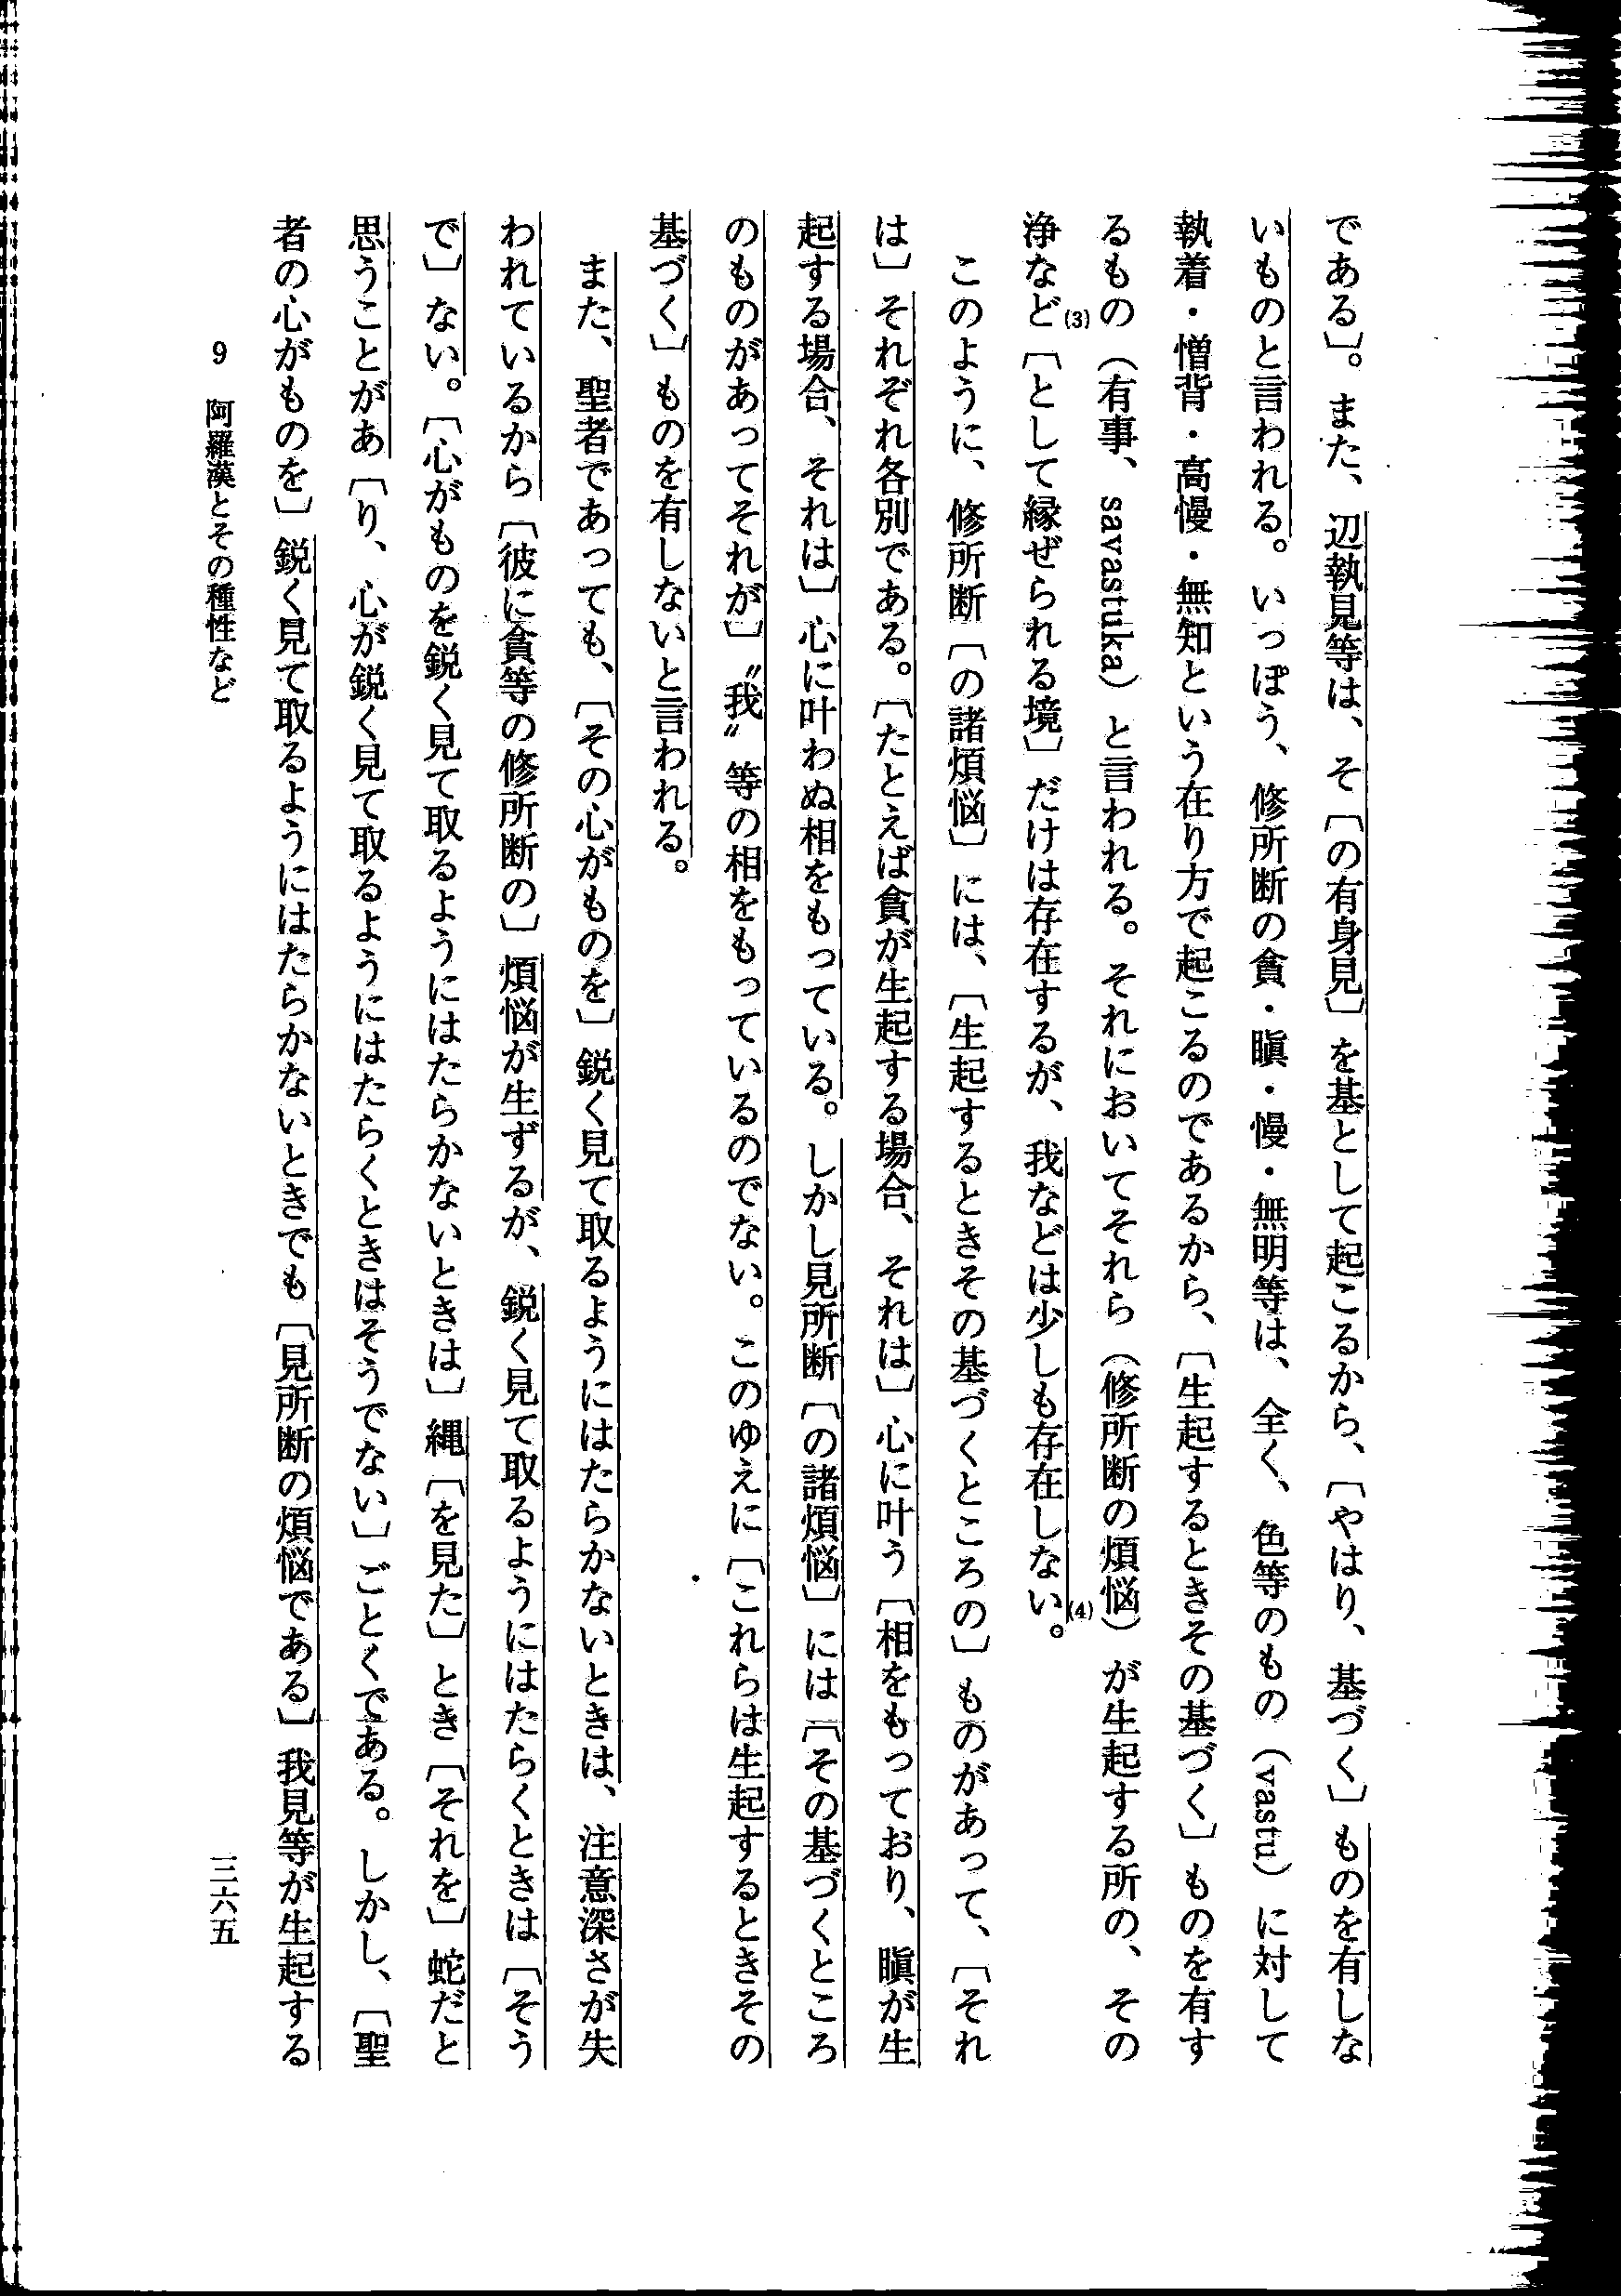 である〕。また、辺執見等は、そ〔の有身見〕を基として起こるから、〔やはり、基づく〕ものを有しな
いものと言われる。いっぽう、修所断の貪・瞋・慢・無明等は、全く、色等のもの（vastu）に対して
執着・憎背・高慢・無知という在り方で起こるのであるから、〔生起するときその基づく〕ものを有す
るもの（有事、savastuka）と言われる。それにおいてそれら（修所断の煩悩）が生起する所の、その
浄など(3)〔として縁ぜられる境〕だけは存在するが、我などは少しも存在しない(4)。
このように、修所断〔の諸煩悩〕には、〔生起するときその基づくところの〕ものがあって、〔それ
は〕それぞれ各別である。〔たとえば貪が生起する場合、それは〕心に叶う〔相をもっており、瞋が生
起する場合、それは〕心に叶わぬ相をもっている。しかし見所断〔の諸煩悩〕には〔その基づくところ
のものがあってそれが〕〝我〟等の相をもっているのでない。このゆえに〔これらは生起するときその
基づく〕ものを有しないと言われる。
また、聖者であっても、〔その心がものを〕鋭く見て取るようにはたらかないときは、注意深さが失
われているから〔彼に貪等の修所断の〕煩悩が生ずるが、鋭く見て取るようにはたらくときは〔そう
で〕ない。〔心がものを鋭く見て取るようにはたらかないときは〕縄〔を見た〕とき〔それを〕蛇だと
思うことがあ〔り、心が鋭く見て取るようにはたらくときはそうでない〕ごとくである。しかし、〔聖
者の心がものを〕鋭く見て取るようにはたらかないときでも〔見所断の煩悩である〕我見等が生起する
9　阿羅漢とその種性など
三六五